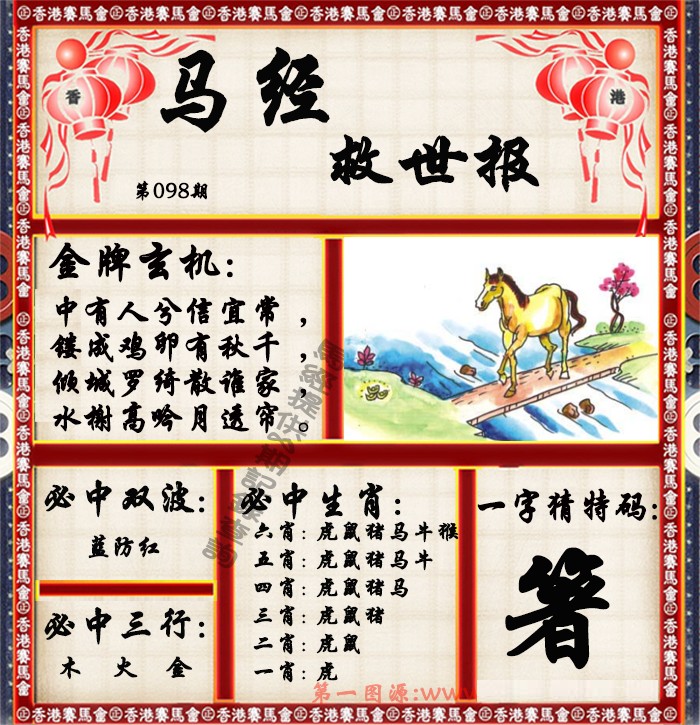 香港賽馬會
香 港
马经
救世报
第098期
金牌玄机:
中有人兮信宜常,
镂成鸡卵有秋千,
倾城罗绮散谁家,
水榭高吟月透帘。
必中双波:
蓝防红
必中三行:
木 火 金
必中生肖:
六肖:虎鼠猪马牛猴
五肖:虎鼠猪马牛
四肖:虎鼠猪马
三肖:虎鼠猪
二肖:虎鼠
一肖:虎
一字猜特码:
箸
第一图源:www